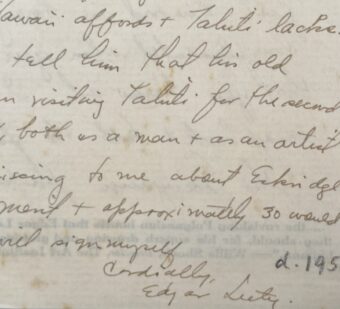 Hawaii affords + Tahiti lacks.
tell him that his old
visiting Tahiti for the second
, both as a man + as an artist
issing to me about Eskridge
ment + approximately 30 would
will sign myself
Cordially,
Edgar
d. 195